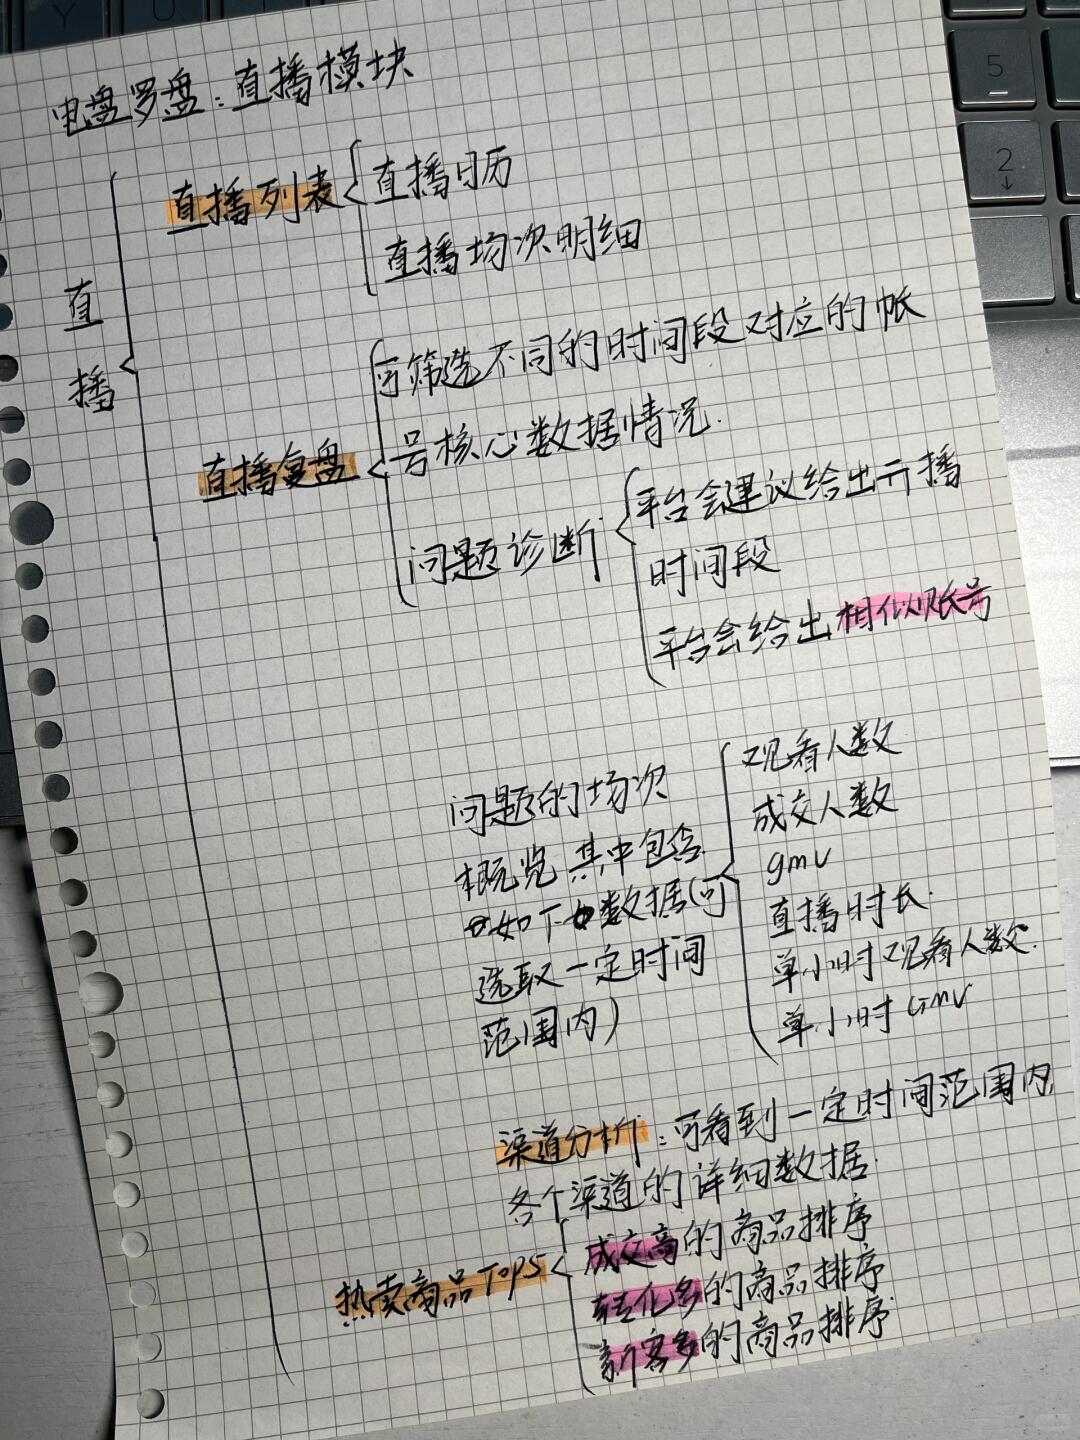 电盘罗盘：直播模块
直播
直播列表
直播日历
直播场次明细
直播复盘
可筛选不同的时间段对应的帐
号核心数据情况.
问题诊断
平台会建议给出开播
时间段
平台会给出相似账号
问题的场次
概览 其中包含
如下数据(可
选取一定时间
范围内)
观看人数
成交人数
gmv
直播时长.
单小时观看人数.
单小时Gmv
渠道分析：可看到一定时间范围内,
各个渠道的详细数据.
热卖商品Top5
成交高的商品排序
转化多的商品排序
新客多的商品排序
5
2